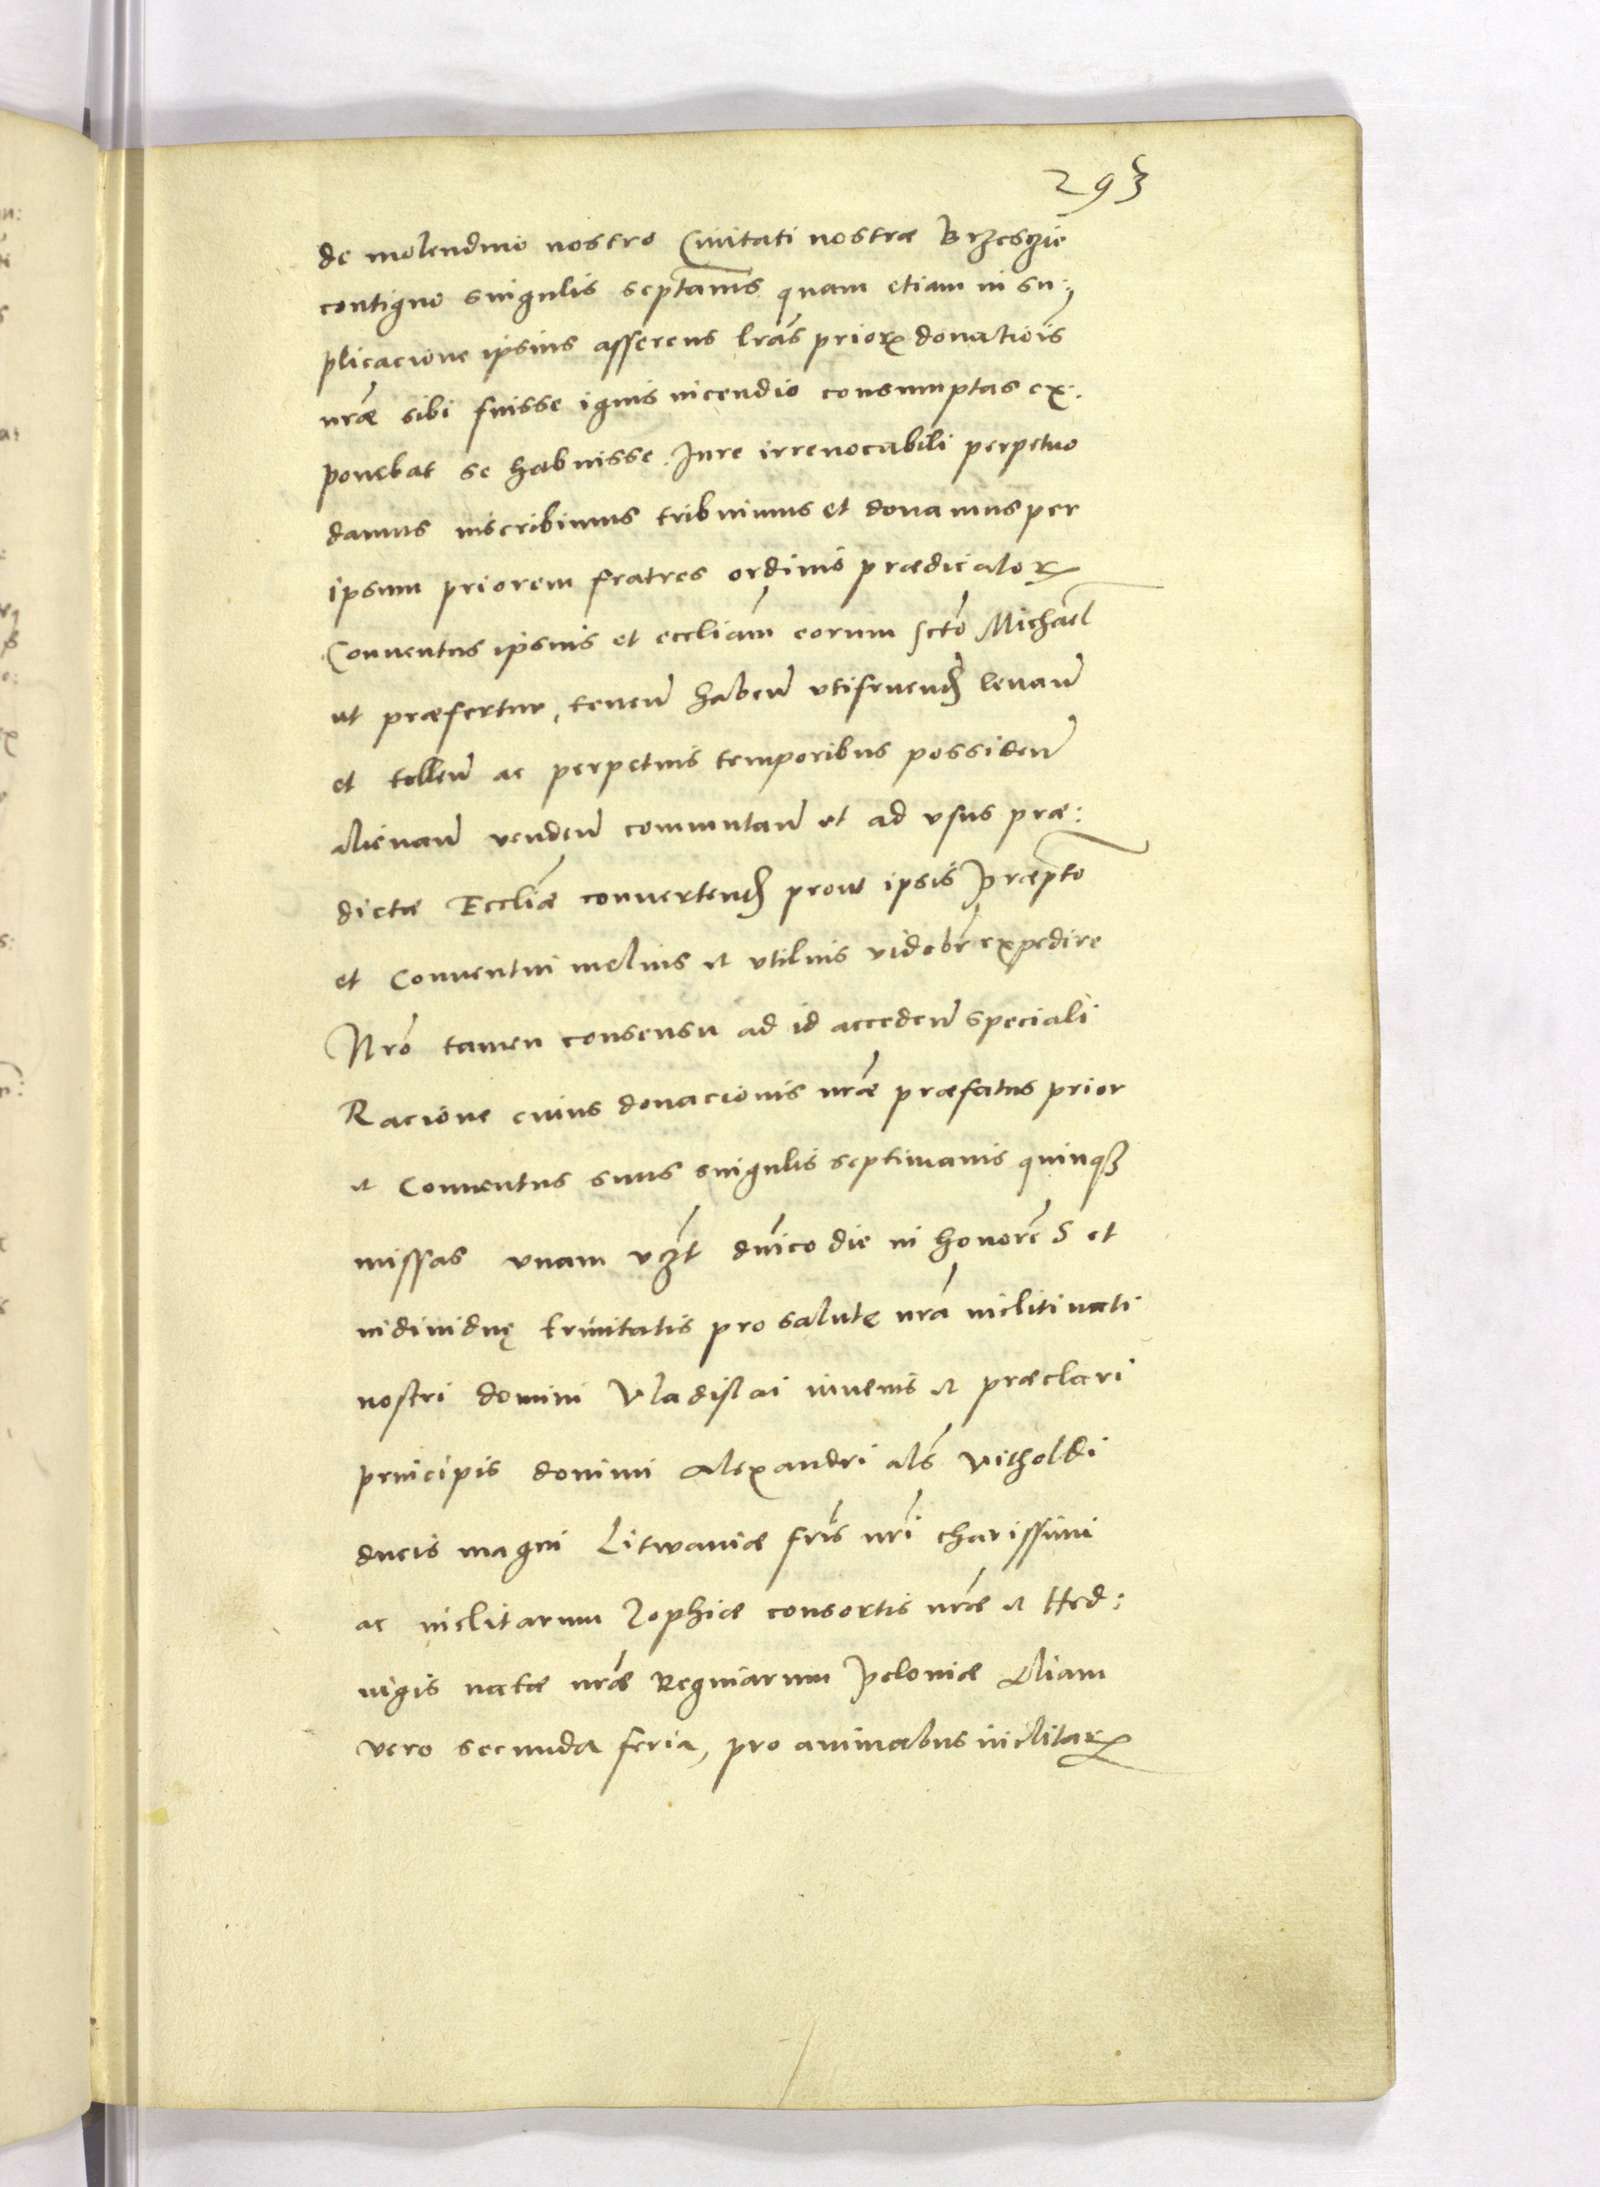 293
de molendino nostro Civitati nostræ Brzescziæ
contiguo singulis septanis quam etiam in su:
plicacione ipsius asserens lras priorꝝ donatiois
nræ sibi fuisse ignis incendio consumptas ex:
ponebat se habuisse. Jure irrevocabili perpetuo
damus inscribimus tribuimus et donamus per
ipsum priorem fratres ordinis prædicatorꝝ
Conventus ipsius et eccliam eorum scto Michael
ut præfertur, tenen haben utifruend levan
et tollen ac perpetuis temporibus possiden
alienan venden commutan et ad usus præ:
dictæ Eccliæ convertend prout ipsis Præpto
et Conventui melius et utilius videbr expedire
Nro tamen consensu ad id acceden speciali
Racione cuius donacionis nræ præfatus prior
et Conventus suus singulis septimanis quinqꝫ
missas unam vꝫt dnico die in honore S et
individuę trinitatis pro salute nra incliti nati
nostri domini Vladislai iuvenis et præclari
principis domini Alexandri als Vitholdi
ducis magni Litwaniæ fris nri charissimi
ac inclitarum Zophiæ consortis nræ et Hed:
vigis natæ nræ Reginarum Poloniæ Aliam
vero secunda feria, pro animabus inclitarꝝ